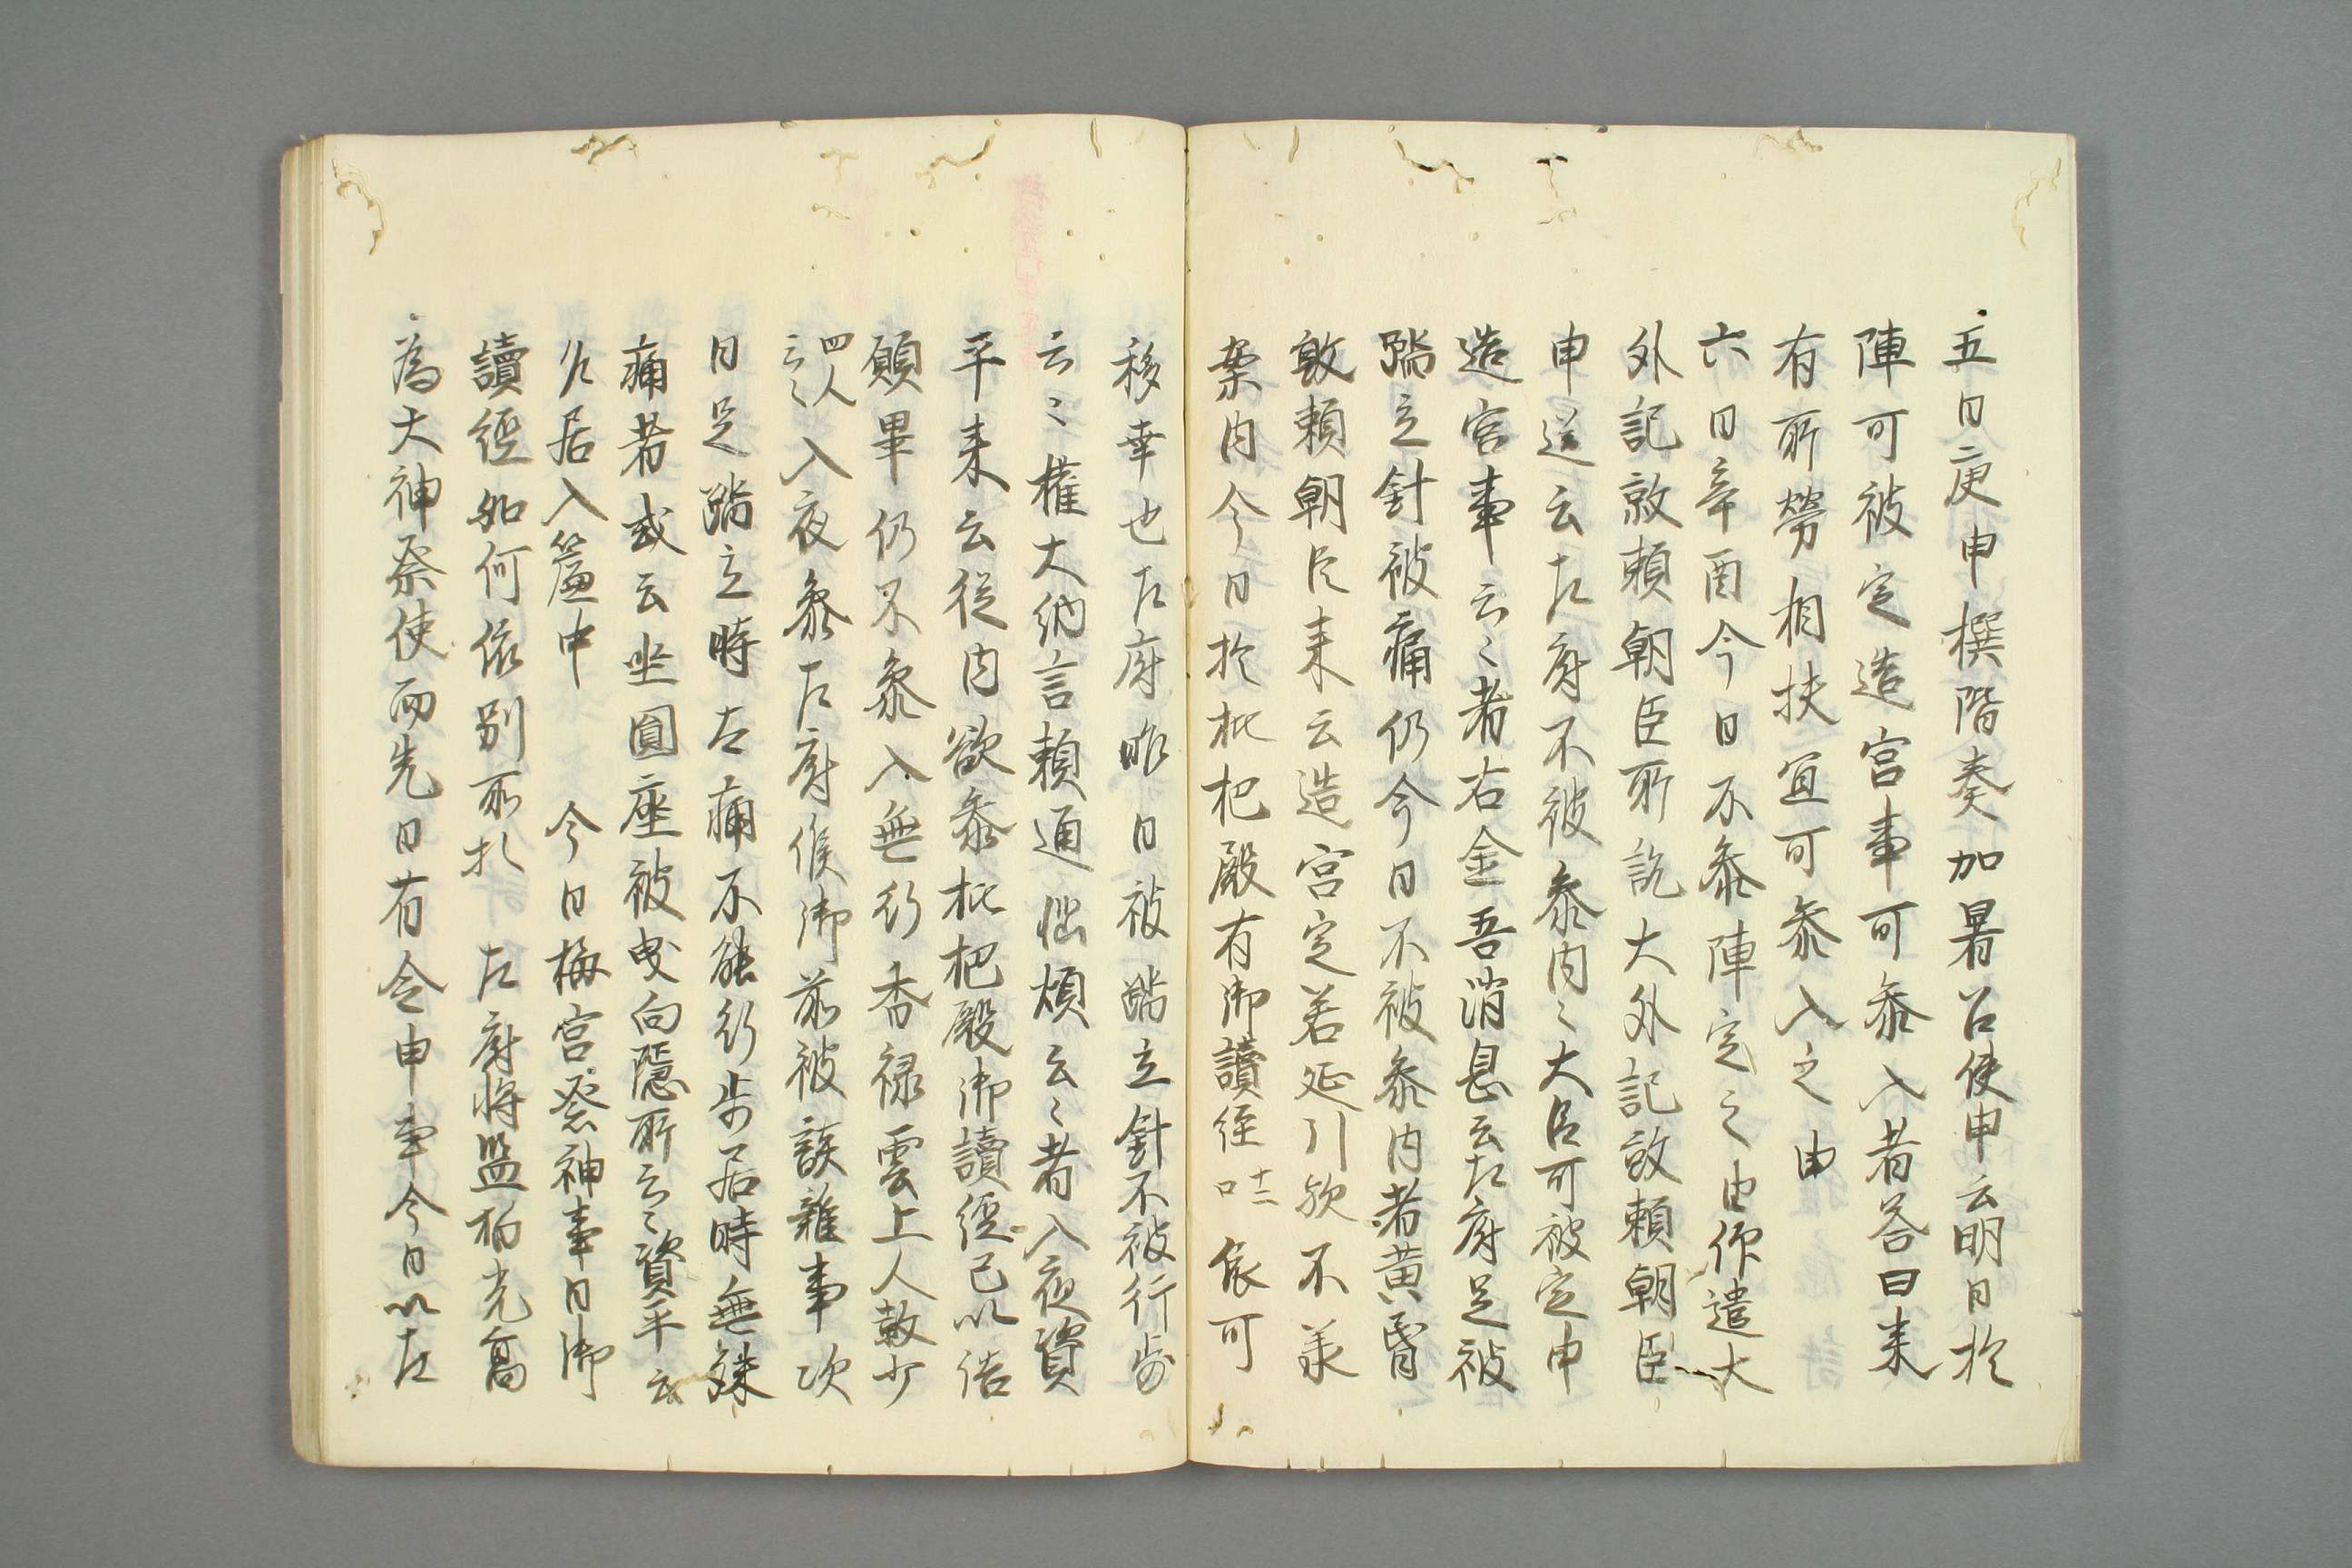 五日庚申撰階奏加暑召使申云明日於
陣可被定造宮事可参入者答曰来
有所勞相扶宜可参入之由
六日辛酉今日不参陣定之由仰遣大
外記敦頼朝臣所訖大外記敦頼朝臣
申送云左府不被参内〻大臣可被定申
造宮事云〻者右金吾消息云左府足被
踏立針被痛仍今日不被参内者黄昏
敦頼朝臣来云造宮定若延引欤不羕
案内今日於枇杷殿有御讀経口十二依可
移幸也左府昨日被踏立針不被行歩
云〻權大納言頼通悩煩云〻者入夜資
平来云従内欲参枇杷殿御讀經已以結
願畢仍不参入無行香禄雲上人數少
四人云〻入夜参左府候御前被談雜事次
日足踏立時太痛不能行歩居時無殊
痛者或云坐圓座被曳向隠所云〻資平云
久居入簾中　今日梅宮祭神事日御
讀經如何依別所於　左府将監柏光高
為大神祭使而先日有令申事今日以左